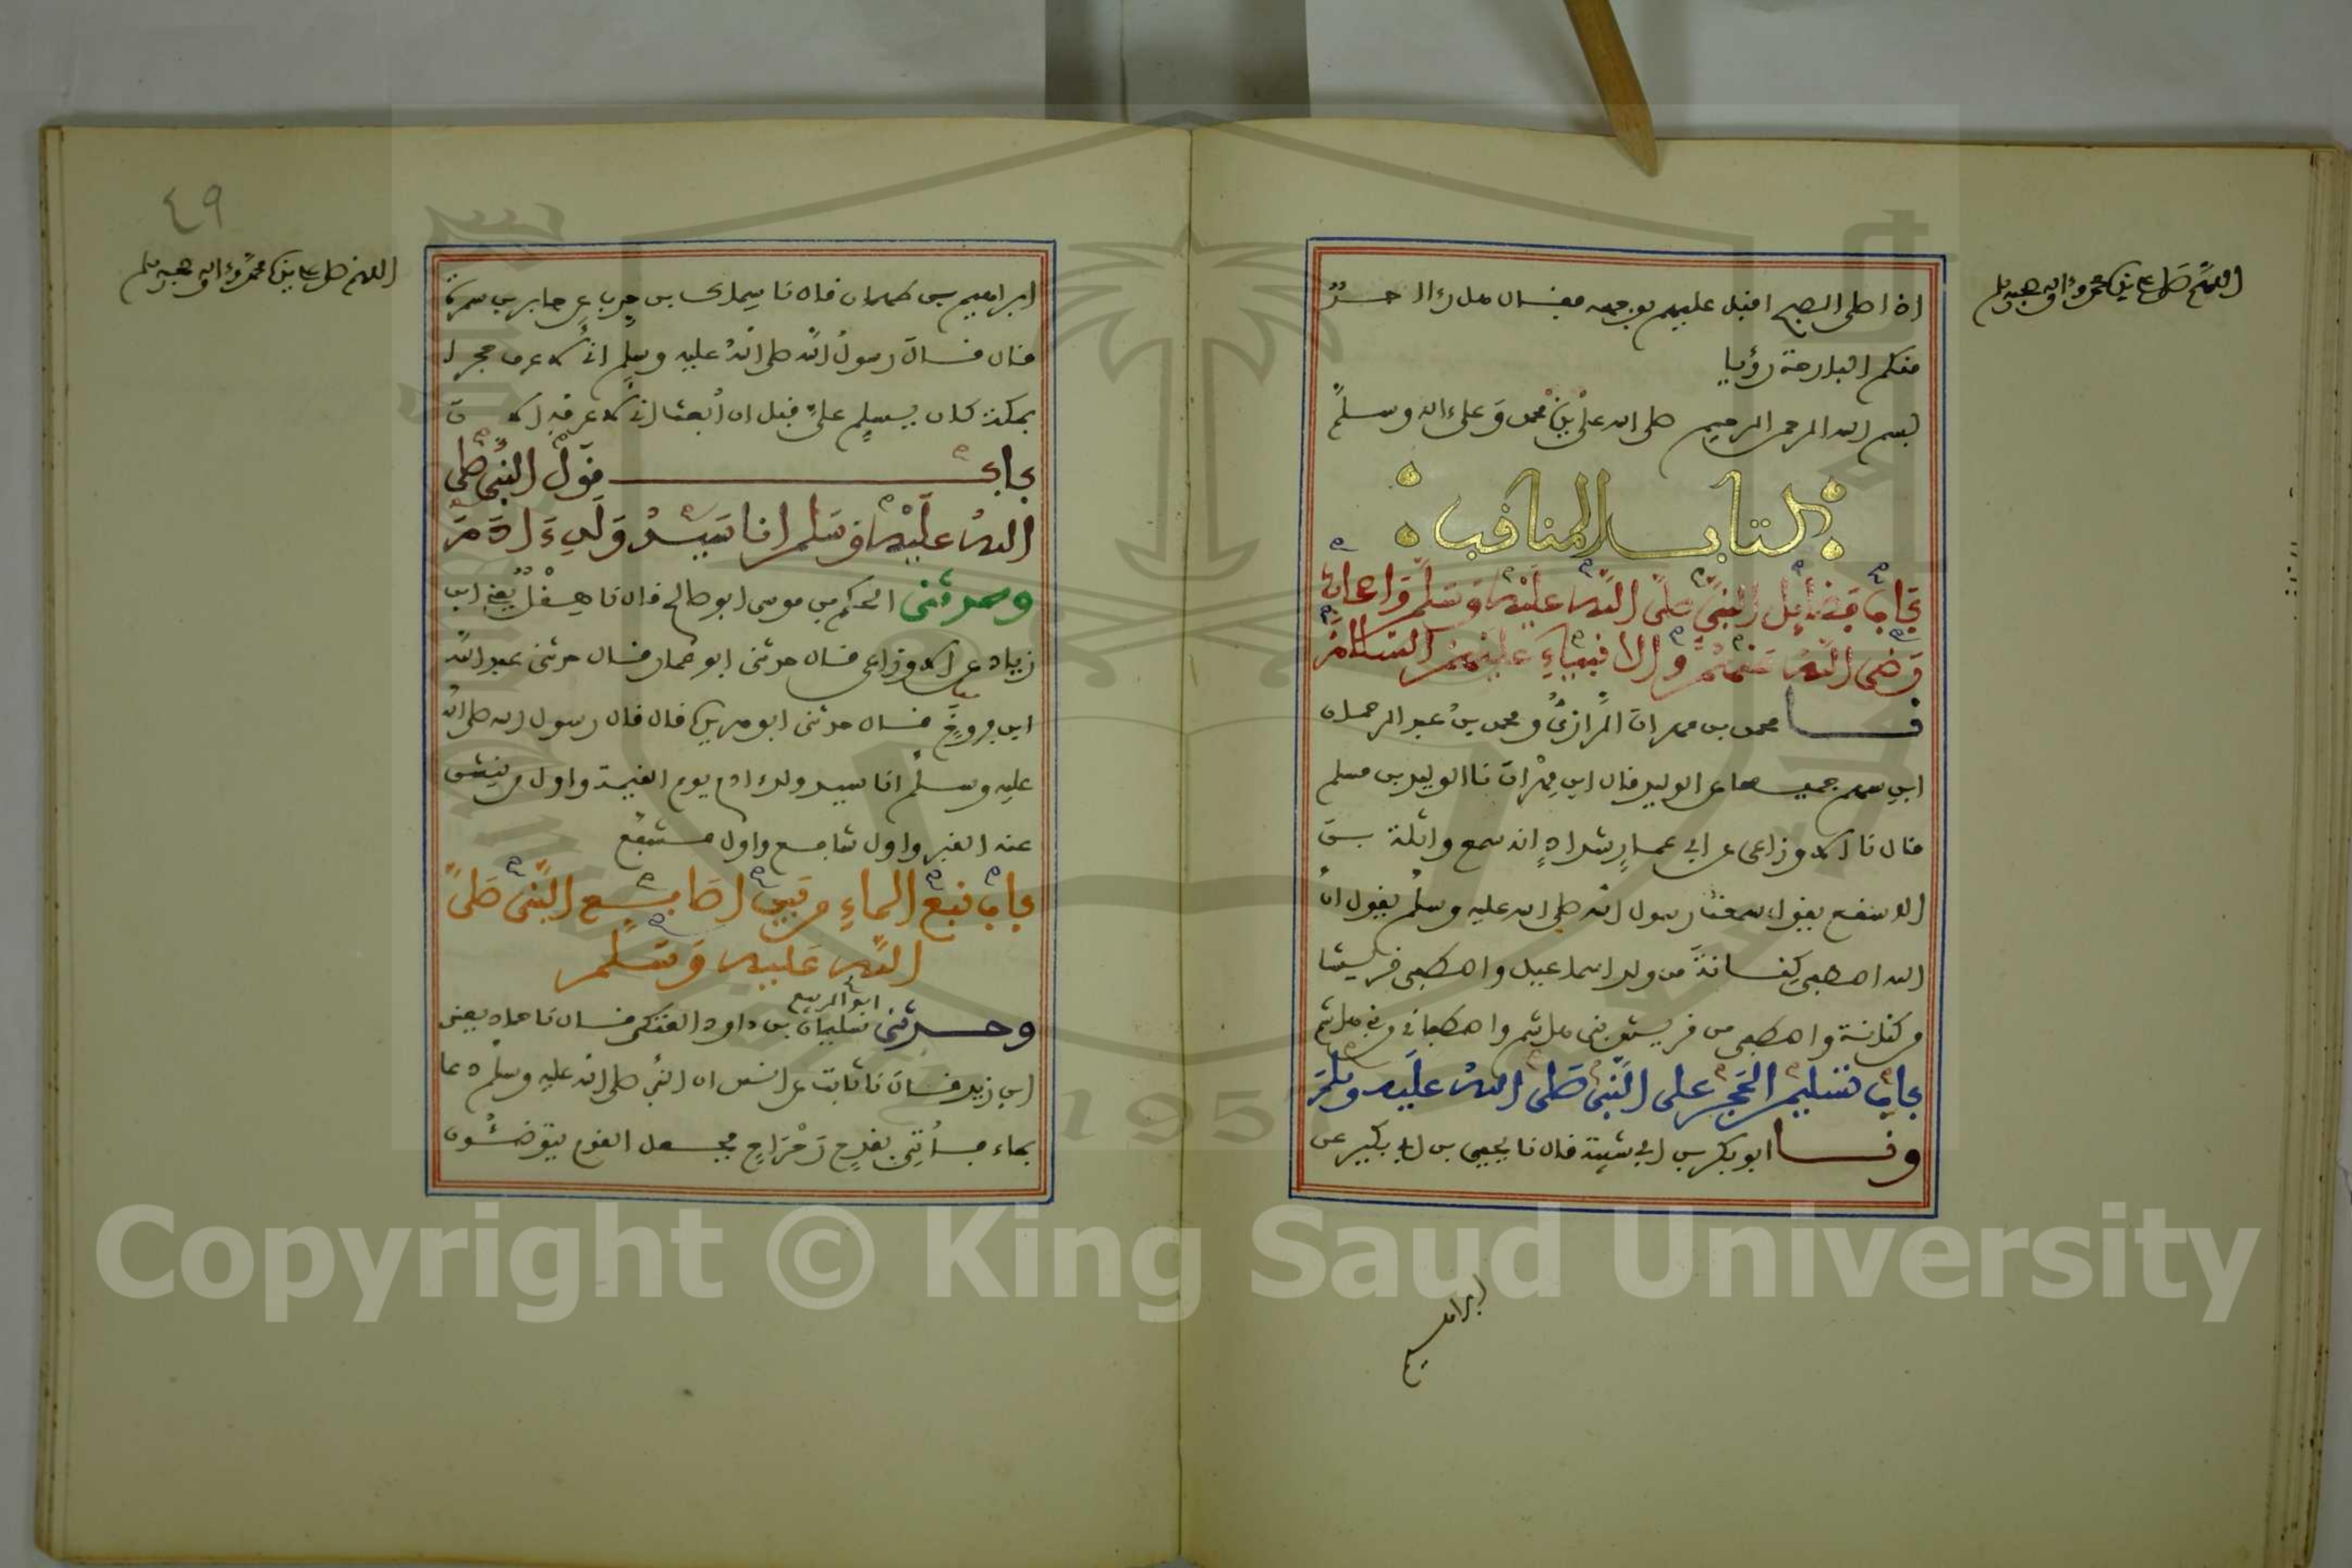 اللهم صل على نبينا محمد وءاله وصحبه وسلم
اذا صلى الصبح اقبل عليهم بوجهه فقال هل رءا احدٌ
منكم البارحة رؤيا
بسم الله الرحمن الرحيم صلى الله على نبينا محمد وعلى ءاله وسلم
كتاب المناقب
باب فضايل النبي صلى الله عليه وسلم واصحابه
رضى الله عنهم والانبياء عليهم السلام
نا محمد بن مهران الرازي ومحمد بن عبد الرحمان
ابن سهم جميعا عن الوليد قال ابن مِهْران نا الوليد بن مسلم
قال نا الاوزاعى عن ابى عمار شداد انه سمع واثلة بن
الاسقع يقول سمعت رسول الله صلى الله عليه وسلم يقول ان
الله اصطفى كِنانةَ من ولد اسماعيل واصطفى قريشا
من كنانة واصطفى من قريش بنى هاشم واصطفانى من بنى هاشم
باب تسليم الحَجَر على النبي صلى الله عليه وسلم
ونا ابو بكر بن ابى شيبة قال نا يحيى بن ابى بكير عن
ابراهيم
٤٩
اللهم صل على نبينا محمد وءاله وصحبه وسلم
ابراهيم بن طهمان قال نا سماك بن حرب عن جابر بن سمرة
قال قال رسول الله صلى الله عليه وسلم انى لاعرف حجرا
بمكة كان يسلم علىّ قبل ان أُبعث انى لاعرفه الان
باب قول النبي صلى
الله عليه وسلم انا سيد ولد ءادم
وحدثنى الحكم بن موسى ابو صالح قال نا هِقْل يعنى ابن
زياد عن الاوزاعى قال حدثنى ابو عمار قال حدثنى عبد الله
ابن فروخ قال حدثنى ابو هريرة قال قال رسول الله صلى الله
عليه وسلم انا سيد ولد ءادم يوم القيمة واول من ينشق
عنه القبر واول شافع واول مشفع
باب نبع الماء من بين اصابع النبي صلى
الله عليه وسلم
وحدثنى ابو الربيع سليمان بن داود العتكى قال نا حماد يعنى
ابن زيد قال نا ثابت عن انس ان النبي صلى الله عليه وسلم دعا
بماء فأُتِىَ بقدحٍ رَحْرَاحٍ فجعل القوم يتوضئون
Copyright © King Saud University
1957